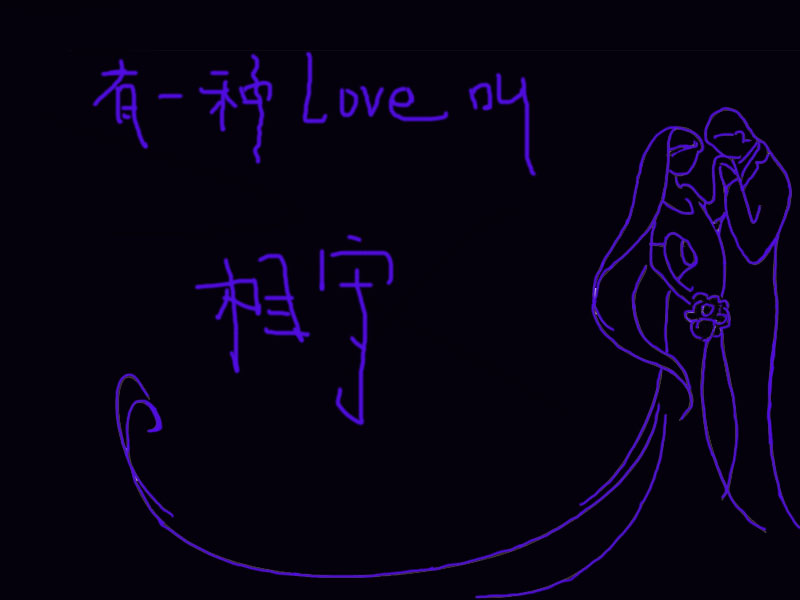 有一种Love叫
相守